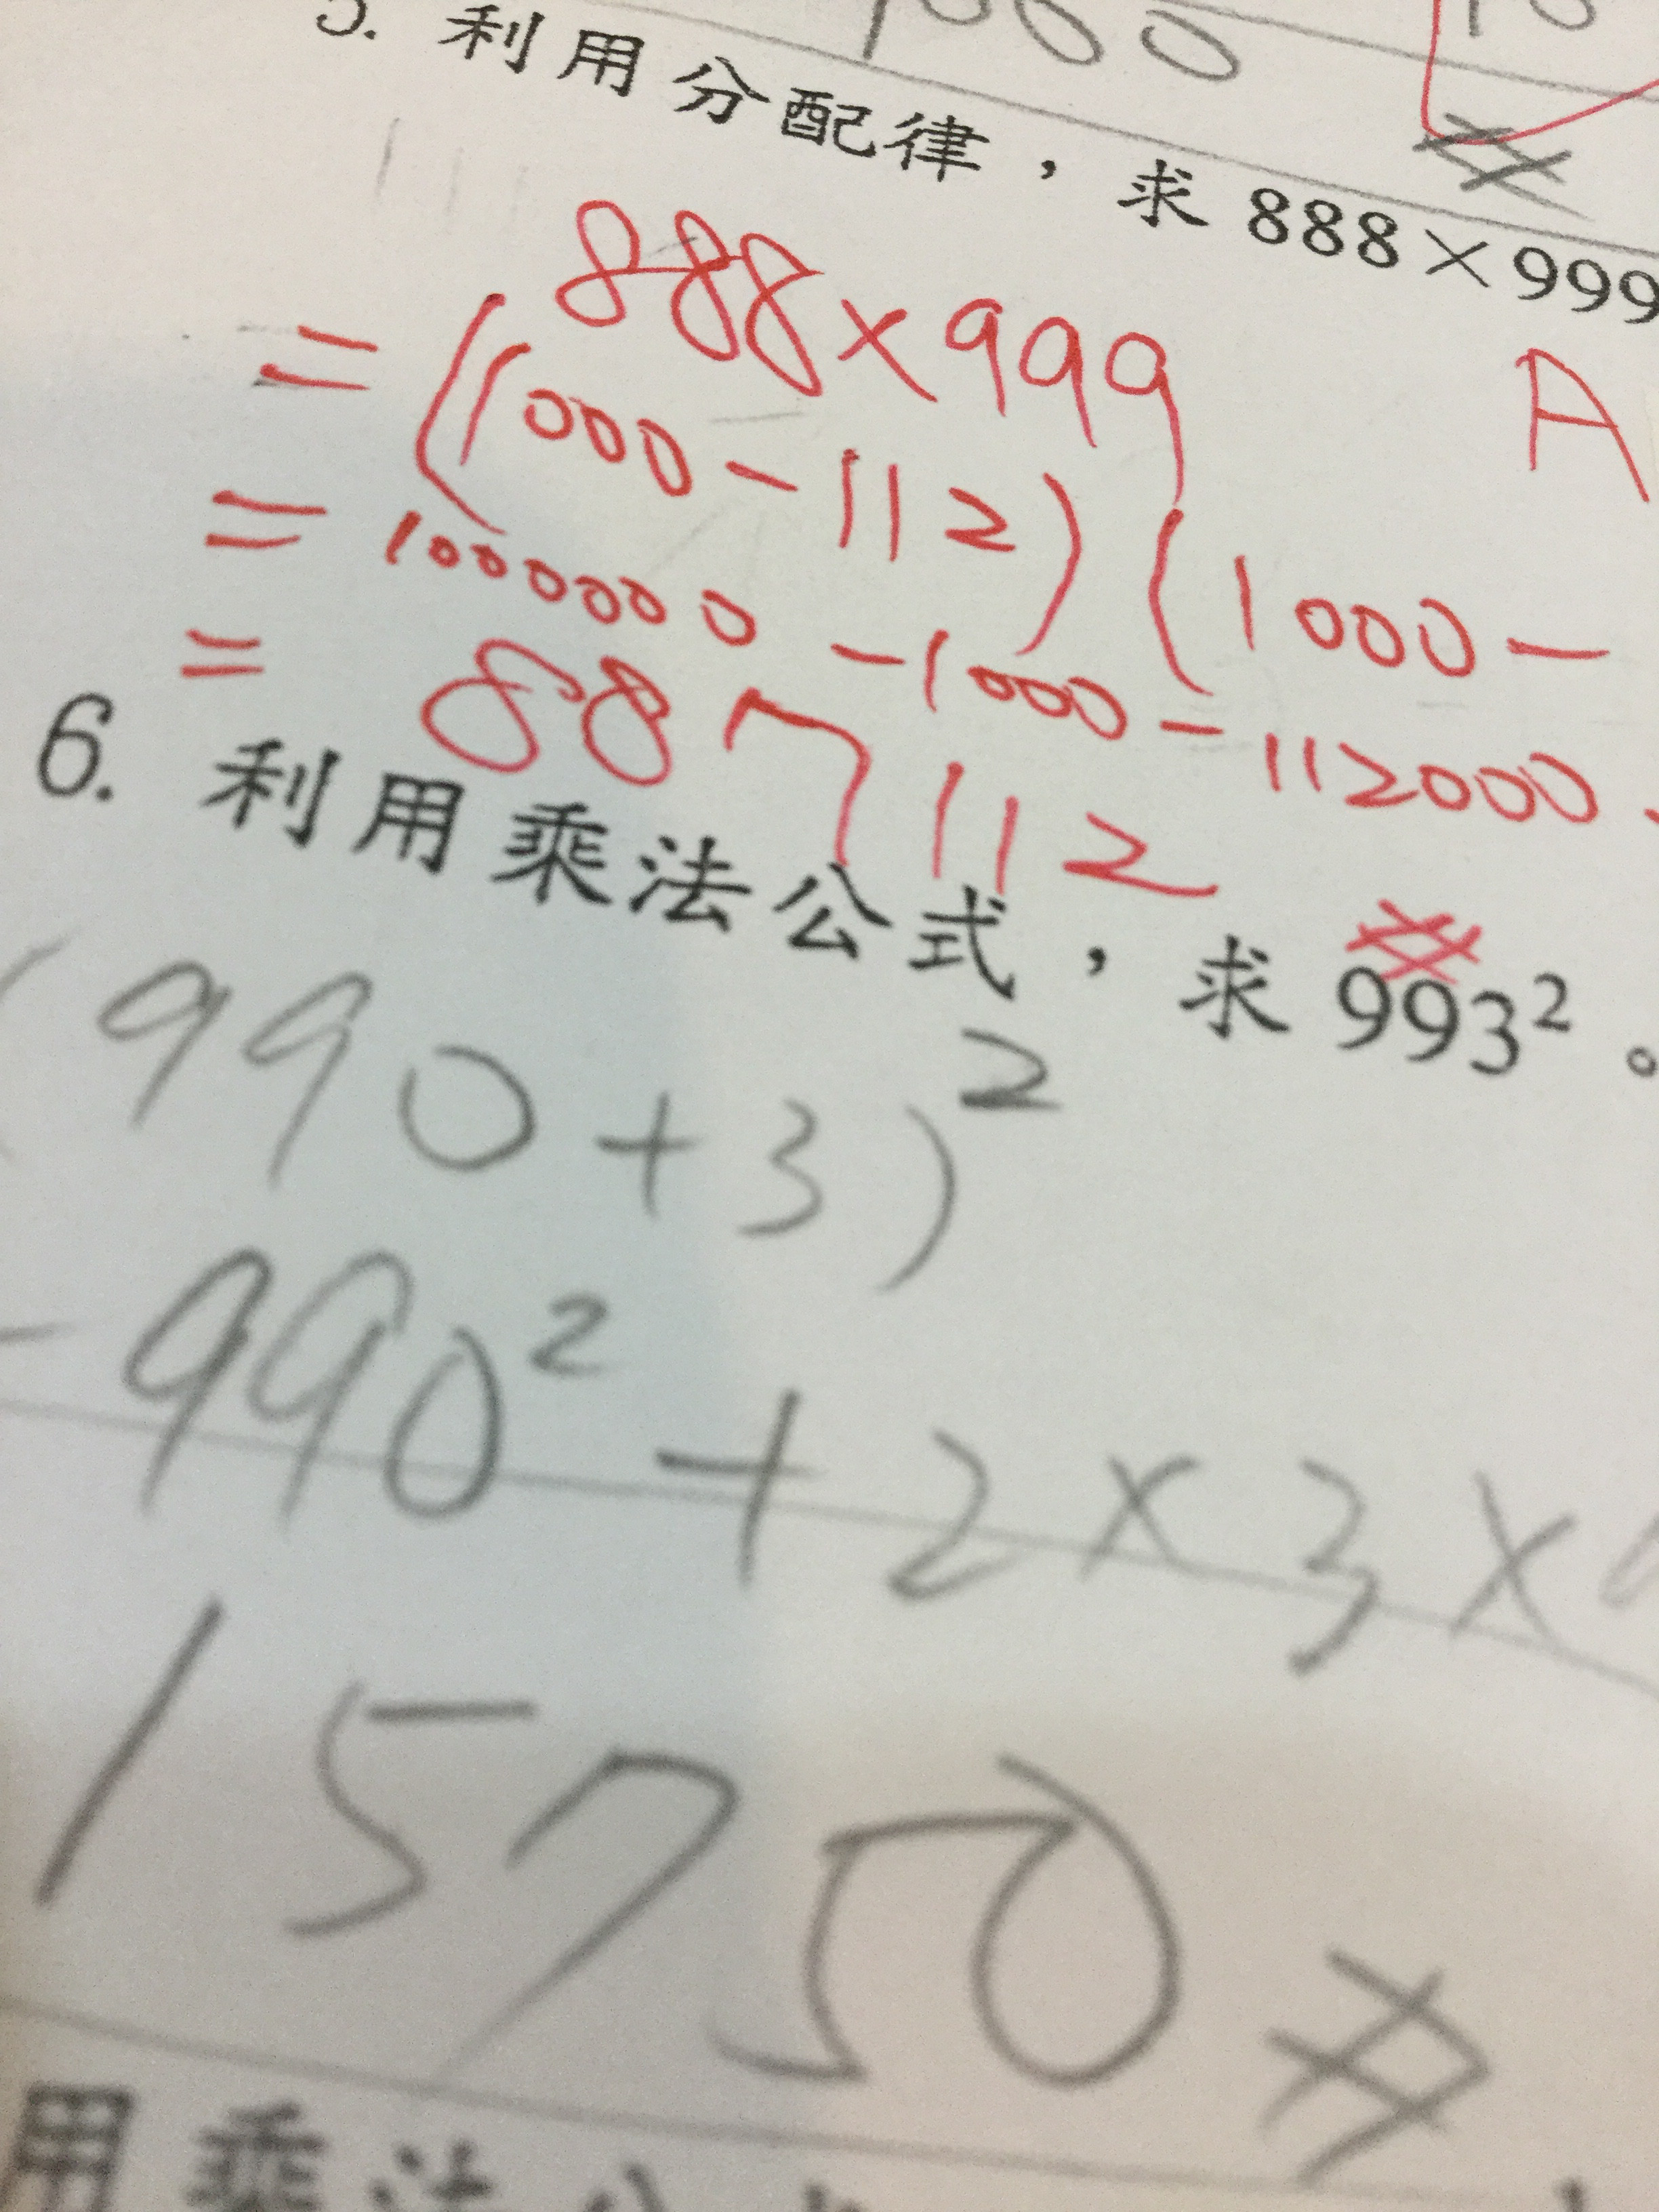 5. 利用分配律，求 888×999
888×999
A
=(1000-112)(1000-
=1000000-1000-112000
=887112
6. 利用乘法公式，求 993²。
(990+3)²
990²+2×3×
15750
用乘法公